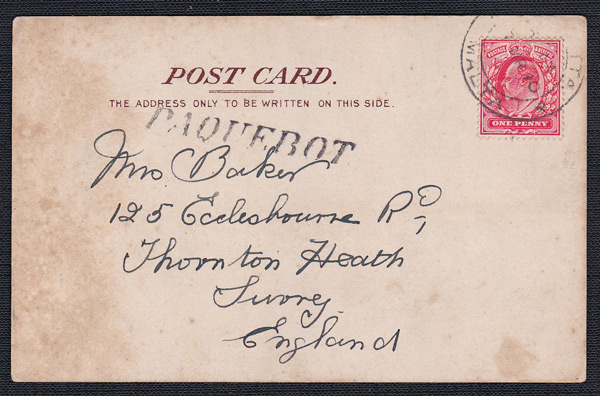 POST CARD.
THE ADDRESS ONLY TO BE WRITTEN ON THIS SIDE.
PAQUEBOT
ONE PENNY
Mrs Baker
125 Ecclesbourne Rd,
Thornton Heath
Surrey
England